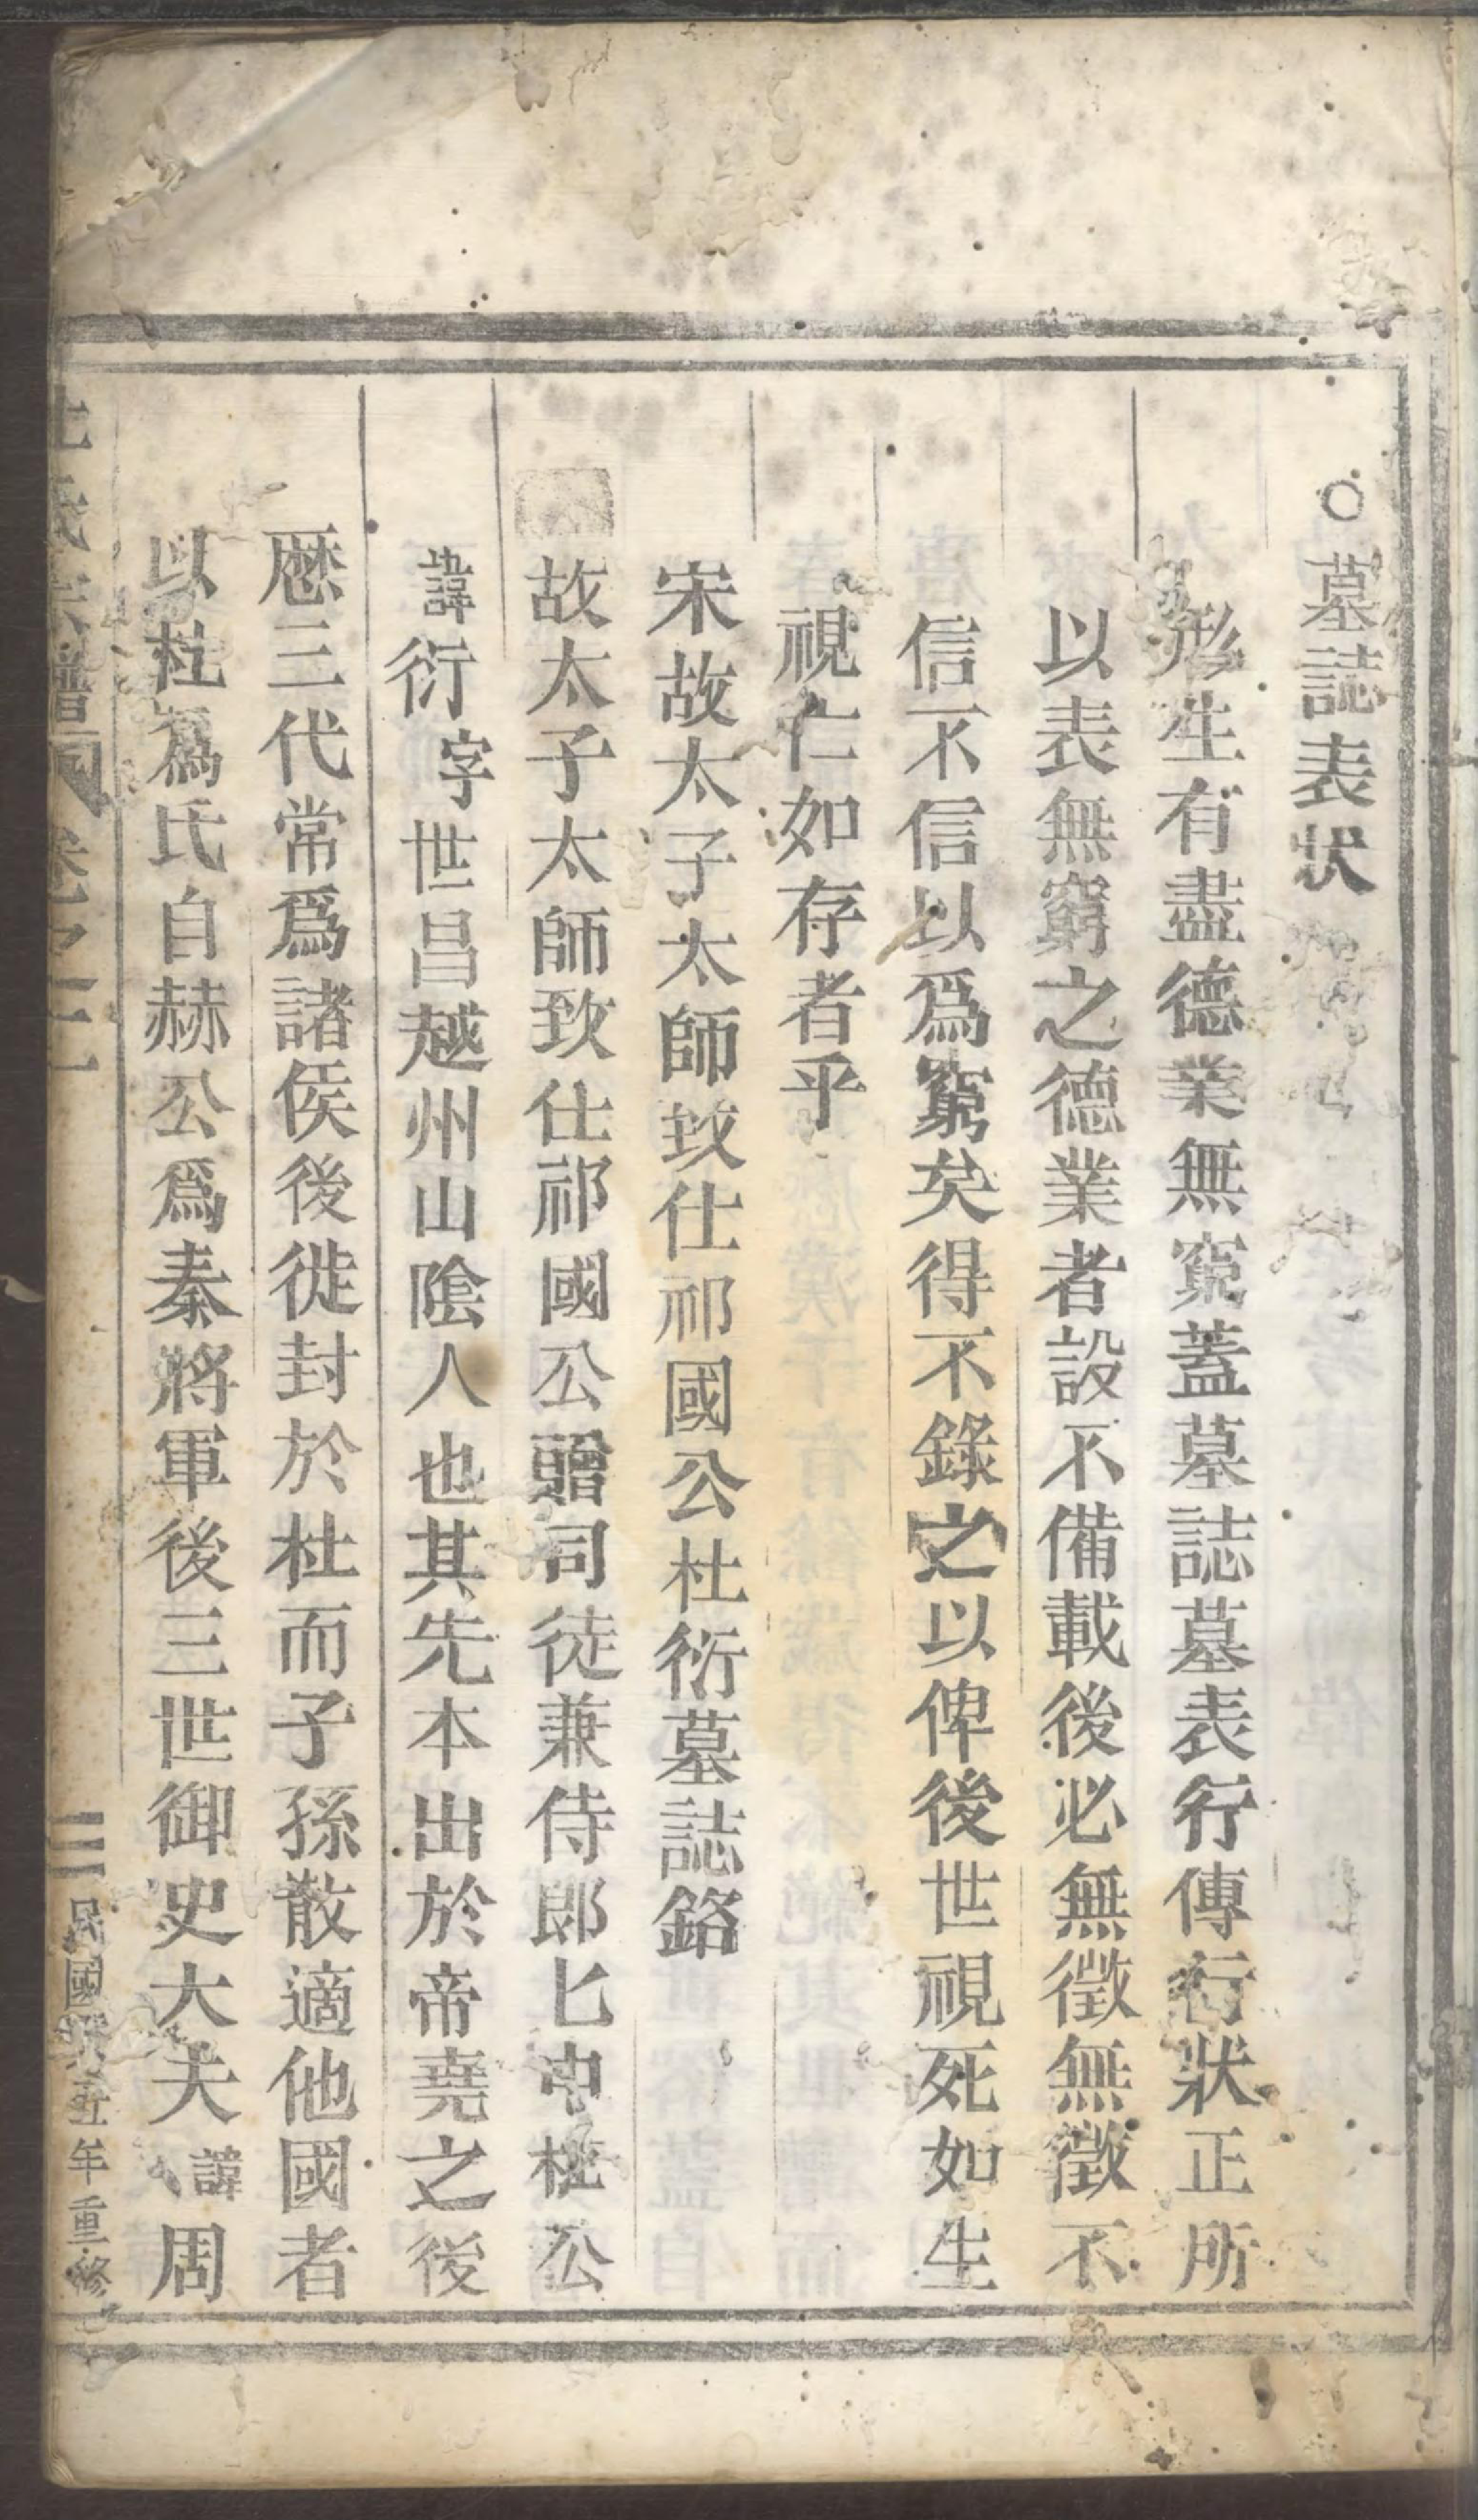 ○墓誌表狀
形生有盡德業無窮蓋墓誌墓表行傳行狀正所
以表無窮之德業者設不備載後必無徵無徵不
信不信以爲窮矣得不錄之以俾後世視死如生
視亡如存者乎
宋故太子太師致仕祁國公杜衍墓誌銘
故太子太師致仕祁國公贈司徒兼侍郎匕中杜公
諱衍字世昌越州山陰人也其先本出於帝堯之後
厯三代常爲諸侯後徙封於杜而子孫散適他國者
以杜爲氏自赫公爲秦將軍後三世御史大夫諱周
杜氏宗譜 卷之二 三 民國五年重修